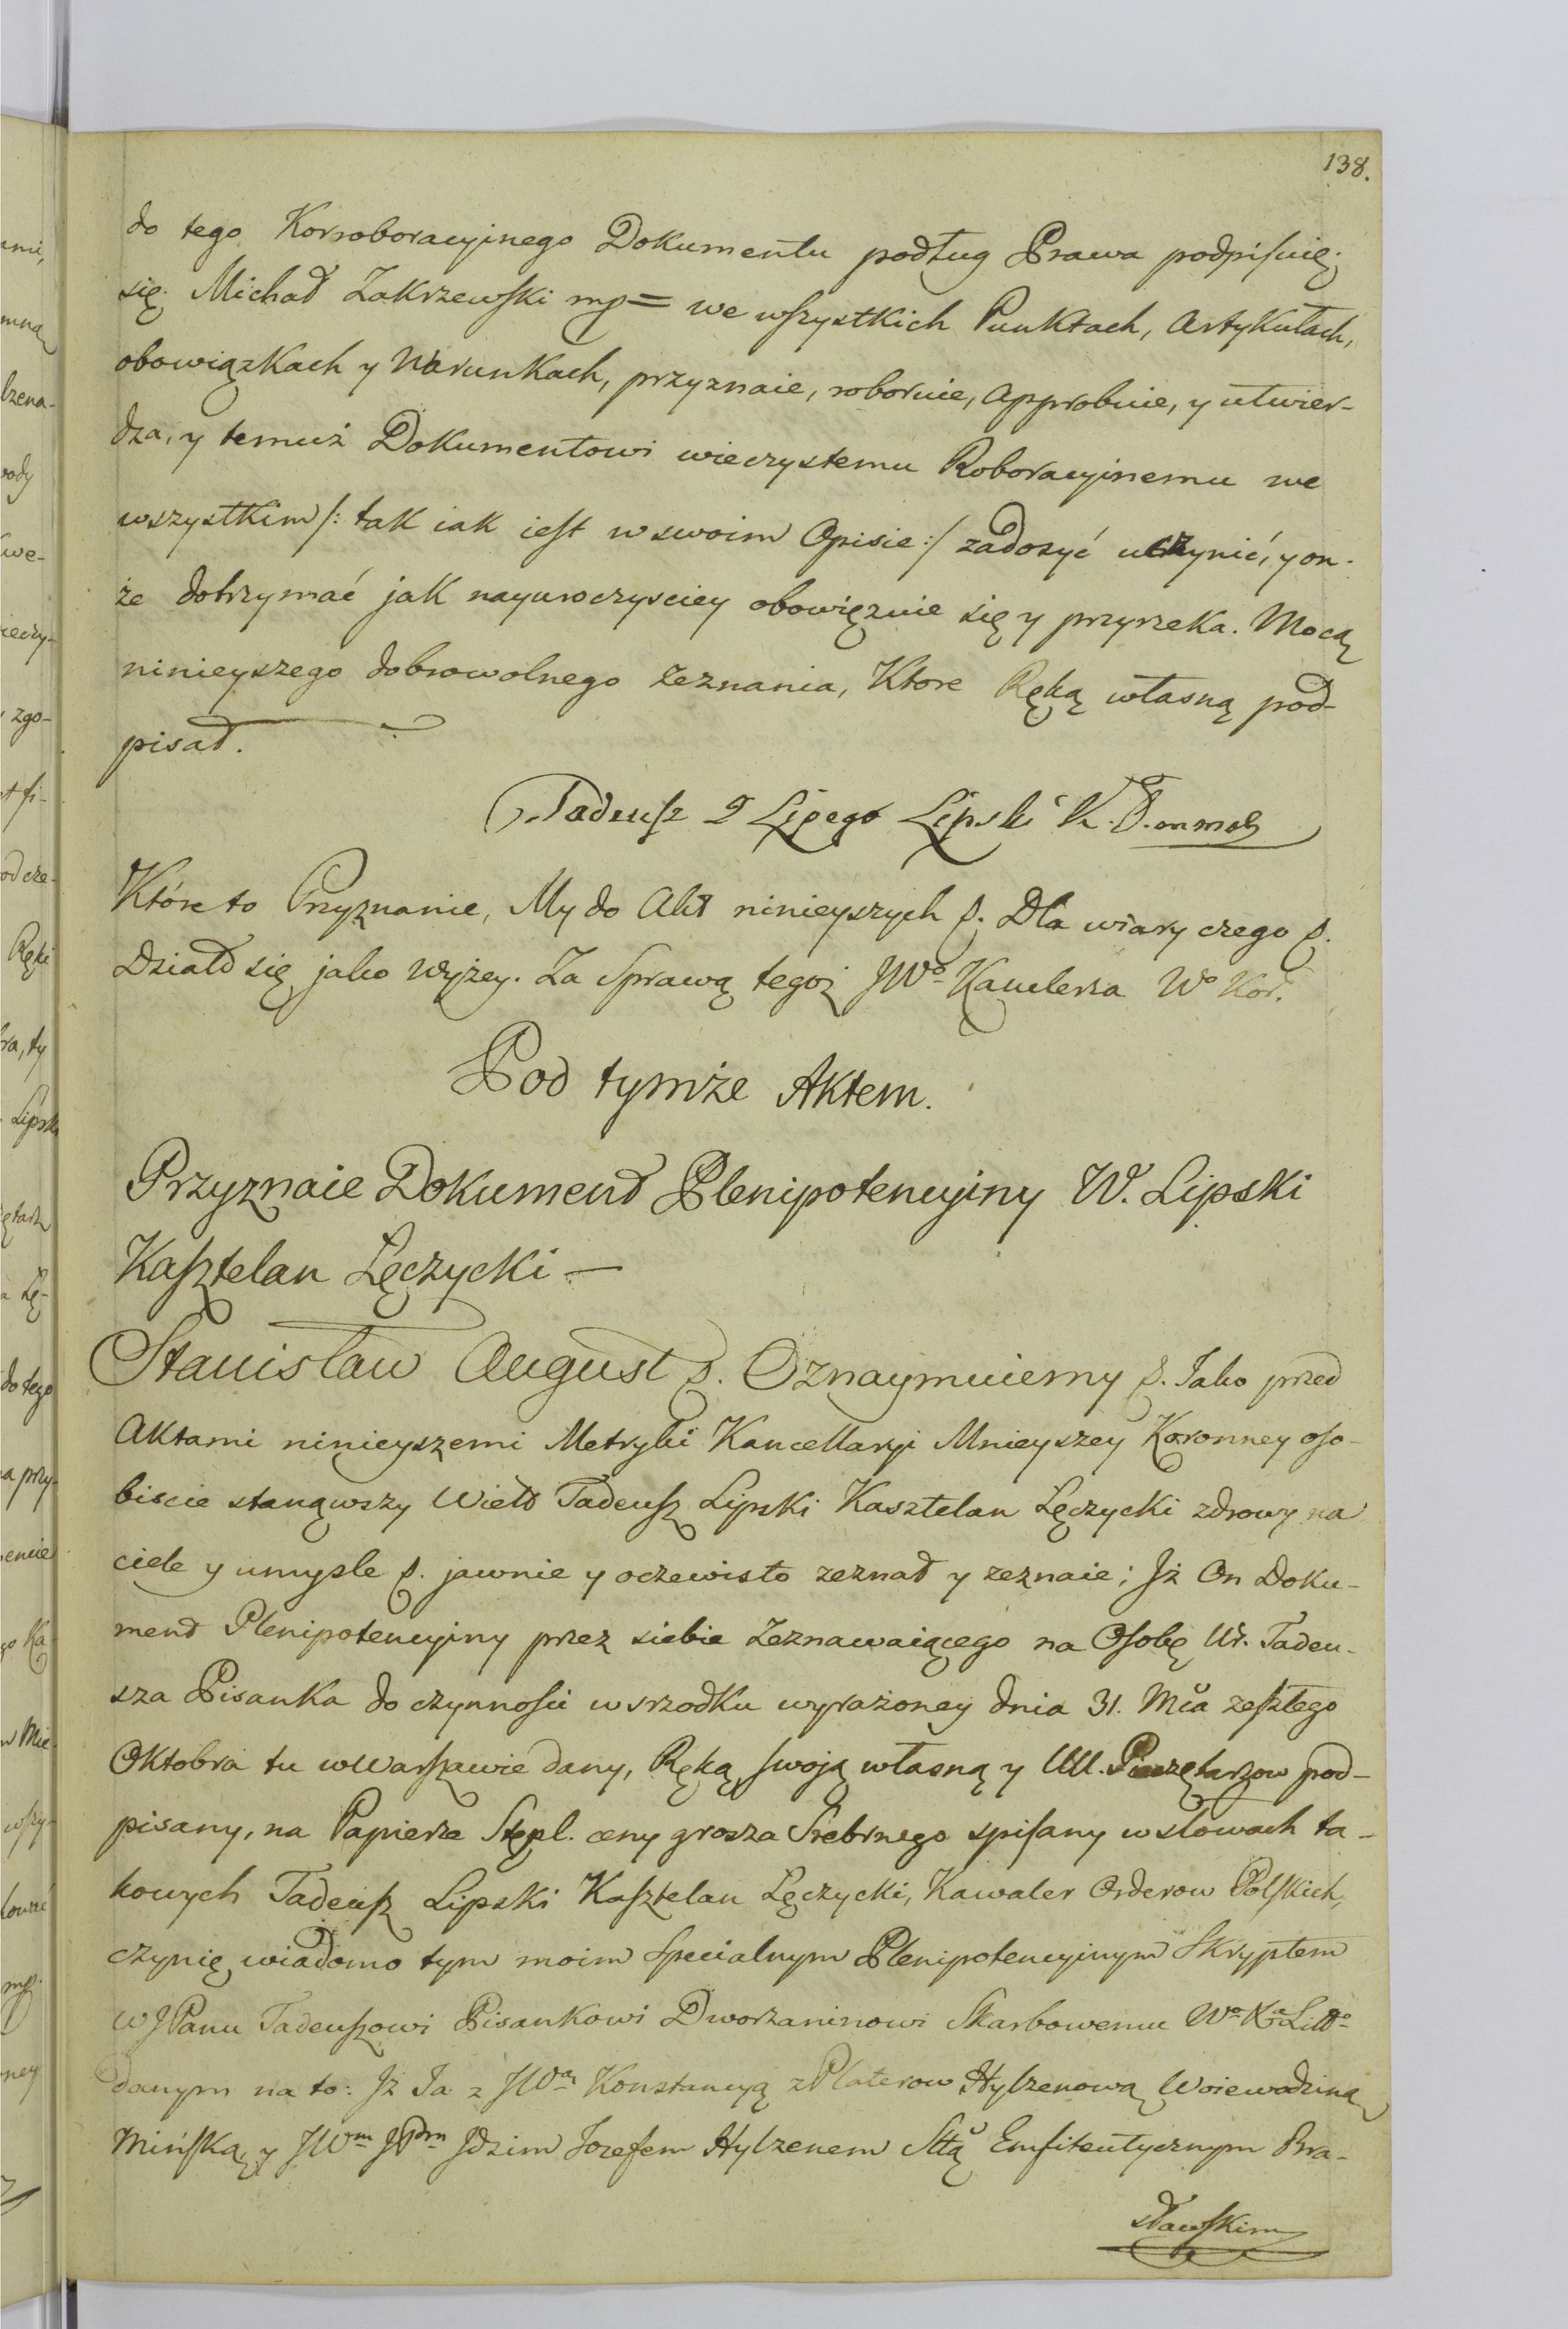 138.
do tego Korroboracyinego Dokumentu podług Prawa podpisuię
się. Michał Zakrzewski mp= we wszystkich Punktach, Artykułach,
obowiązkach y Warunkach, przyznaie, roboruie, approbuie, y utwier-
dza, y temuż Dokumentowi wieczystemu Roboracyinemu we
wszystkim /: tak iak iest w swoim Opisie :/ zadosyć uczynić, y on-
że dotrzymać jak nayuroczysciey obowięzuie się y przyrzeka. Mocą
ninieyszego dobrowolnego zeznania, Ktore Ręką własną pod-
pisał.
Tadeusz Lipego Lipski K.
Które to Przyznanie, My do Akt ninieyszych p. Dla wiary czego p.
Działo się jako wyżey. Za Sprawą tegoż JWo Kanclerza Wo Kor.
Pod tymże Aktem.
Przyznaie Dokument Plenipotencyiny W. Lipski
Kasztelan Łęczycki —
Stanisław August p. Oznaymuiemy p. Iako przed
Aktami ninieyszemi Metryki Kancellaryi Mnieyszey Koronney oso-
biscie stanąwszy Wielo Tadeusz Lipski Kasztelan Łęczycki zdrowy na
ciele y umysle p. jawnie y oczewisto zeznał y zeznaie; Jż On Doku-
ment Plenipotencyiny przez siebie Zeznawaiącego na Osobę Ur. Tadeu-
sza Pisanka do czynnosci w srzodku wyrażoney dnia 31. Mca zeszłego
Oktobra tu w Warszawie dany, Ręką swoią własną y UU. Pieczętarzow pod-
pisany, na Papierze Stępl. ceny grosza Srebrnego spisany w słowach ta-
kowych Tadeusz Lipski Kasztelan Łęczycki, Kawaler Orderow Polskich,
czynię wiadomo tym moim specialnym Plenipotencyinym Skryptem
WJPanu Tadeuszowi Pisankowi Dworzaninowi Skarbowemu Wo Xa Litto
danym na to: Jż Ia z JWą Konstancyą z Platerow Hylzenową Woiewodziną
Mińską, y JWm JPm Jdzim Jozefem Hylzenem Sttą Emfiteutycznym Bra-
sławskim